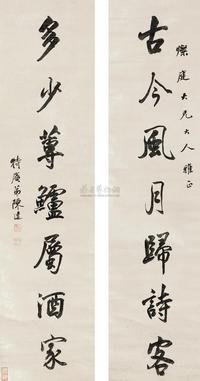 燦庭大兄大人雅正
古今風月歸詩客
多少蓴鱸屬酒家
特廣弟陳逵